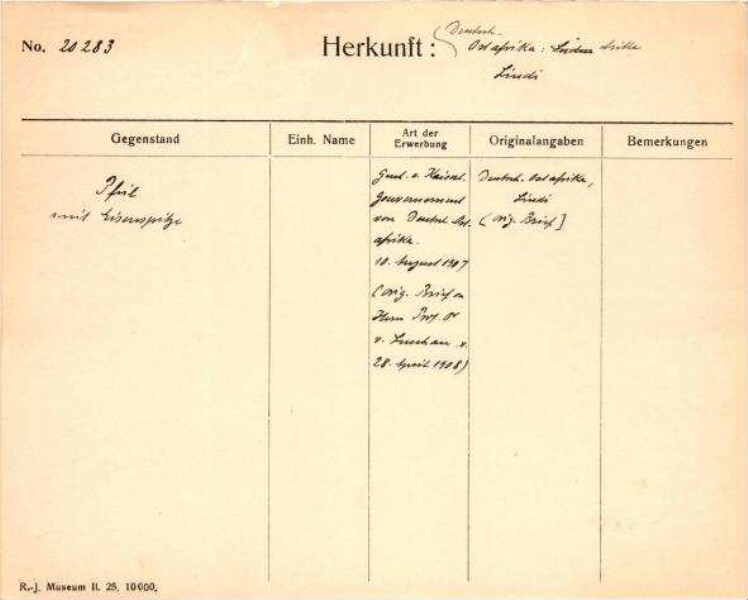 No. 20283
Herkunft: Deutsch-
Ostafrika: Südostafrika
Lindi
Gegenstand
Einh. Name
Art der
Erwerbung
Originalangaben
Bemerkungen
Pfeil
mit Eisenspitze
v. Kaiserl.
Gouvernement
von Deutsch Ost-
afrika.
10. August 1907
(orig. Brief an
Herrn Prof. Dr
v. Luschan v.
28. April 1908)
Deutsch. Ostafrika,
Lindi
(orig. Brief]
R.-J. Museum II. 25. 10000.